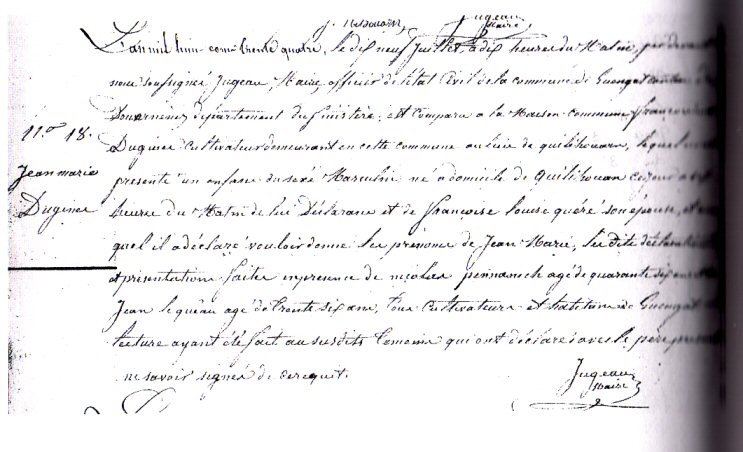 Jugeau
Maire
L'an mil huit cent trente quatre, le dix neuf Juillet, a dix heures du Matin, par devant
nous soussigné Jugeau, Maire, officier de l'état Civil de la commune de Guengat canton de
Douarnenez département du finistère, est comparu a la Maison commune francois
Duginer Cultivateur demeurant en cette commune au lieu de quilihouarn, lequel
présenté un enfant du sexe Masculin né a domicile de Quilihouan ce jour a
heures du Matin de lui Déclarant et de francoise louise quéré son épouse, et
quel il a déclaré vouloir donner les prénoms de Jean Marie, les dite déclaration
et présentation faites en présence de nicolas pennanech agé de quarante six ans
Jean le quéau agé de trente six ans, tous cultivateurs et habitans de Guengat
lecture ayant été fait au susdits temoins qui ont déclaré avec le père
ne savoir signer de ce requit.
n.o 18.
Jean marie
Duginer
Jugeau
Maire